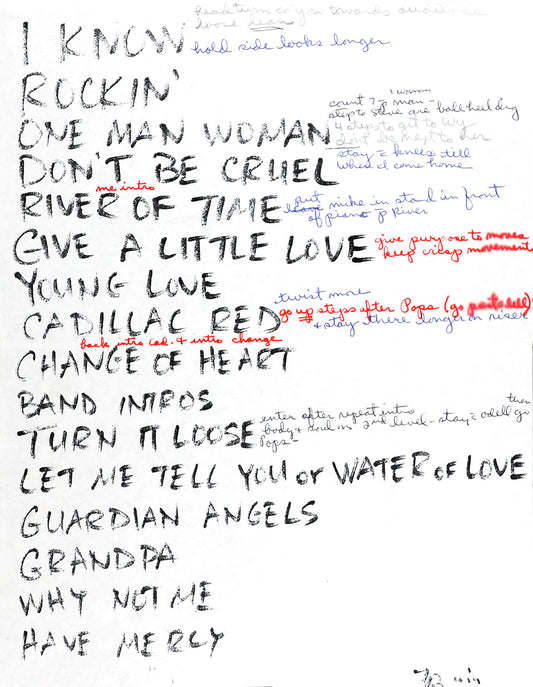 head turn on you towards audience
loose lean
I KNOW hold side looks longer
ROCKIN'
1 woman
count 7 man -
step to Steve are ball heel dig
ONE MAN WOMAN 4 steps to get to Wy
don't be next to her
DON'T BE CRUEL stay = knees till
when I come home
me intro
RIVER OF TIME put mike in stand in front
of piano p River
GIVE A LITTLE LOVE give purpose to moves
keep crisp movements
YOUNG LOVE
twist more
CADILLAC RED go up steps after Pops (go
& stay there longer on riser
back intro cad. & intro change
CHANGE OF HEART
BAND INTROS
enter after repeat intro then
TURN IT LOOSE body & soul on 2nd level - stay = odell go
Pops -
LET ME TELL YOU or WATER OF LOVE
GUARDIAN ANGELS
GRANDPA
WHY NOT ME
HAVE MERCY